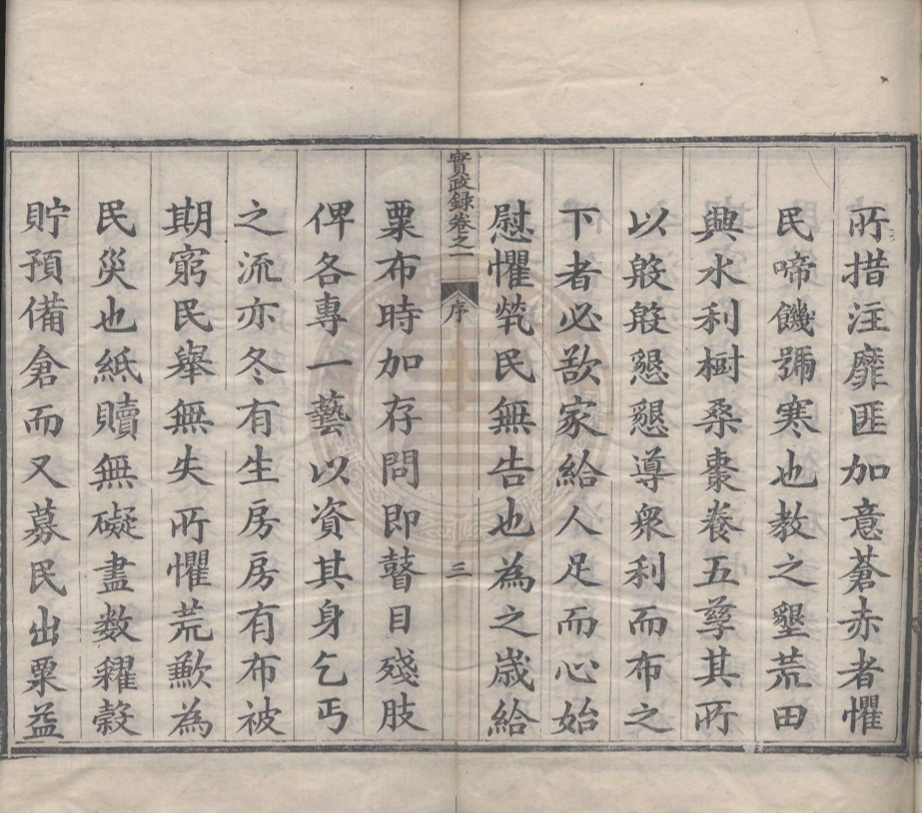 所措注靡匪加意蒼赤者懼
民啼饑號寒也教之墾荒田
興水利樹桑棗養五孳其所
以殷殷懇懇導衆利而布之
下者必歆家給人足而心始
慰懼煢民無告也為之歲給
實政録卷之一 序 三
粟布時加存問即瞽目殘肢
俾各專一藝以資其身乞丐
之流亦冬有生房房有布被
期窮民舉無失所懼荒歉為
民災也紙贖無礙盡數糴穀
貯預備倉而又募民出粟益